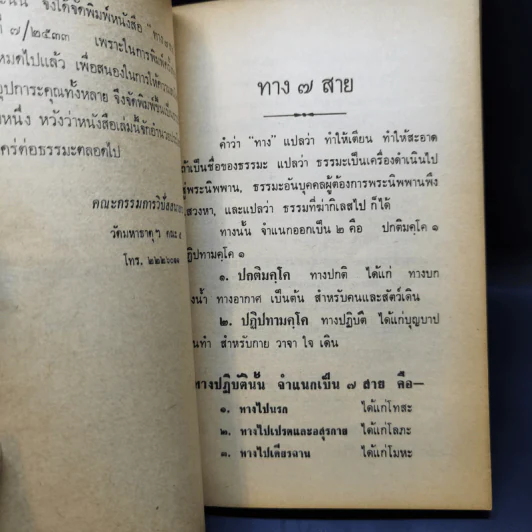 ะนน จึงได้จัดพิมพ์หนังสือ "ทาง๗
ที่ ๗/๒๕๓๓ เพราะในการพิมพ์
หมดไปแล้ว เพื่อสนองในการให้
อุปการะคุณทั้งหลาย จึงจัดพิมพ์ขึ้น
หนึ่ง หวังว่าหนังสือเล่มนี้จัก
คร่ต่อธรรมะตลอดไป
คณะกรรมการวิปัสสนา
วัดมหาธาตุฯ คณะ ๕
โทร.
ทาง ๗ สาย
คำว่า "ทาง" แปลว่า ทำให้เตียน ทำให้สะอาด
ถ้าเป็นชื่อของธรรมะ แปลว่า ธรรมะเป็นเครื่องดำเนินไป
สู่พระนิพพาน, ธรรมะอันบุคคลผู้ต้องการพระนิพพานพึง
แสวงหา, และแปลว่า ธรรมที่ฆ่ากิเลสไป ก็ได้
ทางนั้น จำแนกออกเป็น ๒ คือ ปกติมคฺโค ๑
ปฏิปทามคฺโค ๑
๑. ปกติมคฺโค ทางปกติ ได้แก่ ทางบก
ทางน้ำ ทางอากาศ เป็นต้น สำหรับคนและสัตว์เดิน
๒. ปฏิปทามคฺโค ทางปฏิบัติ ได้แก่บุญบาป
นทำ สำหรับกาย วาจา ใจ เดิน
ทางปฏิบัตินั้น จำแนกเป็น ๗ สาย คือ—
๑. ทางไปนรก ได้แก่โทสะ
๒. ทางไปเปรตและอสุรกาย ได้แก่โลภะ
๓. ทางไปเดียรฉาน ได้แก่โมหะ